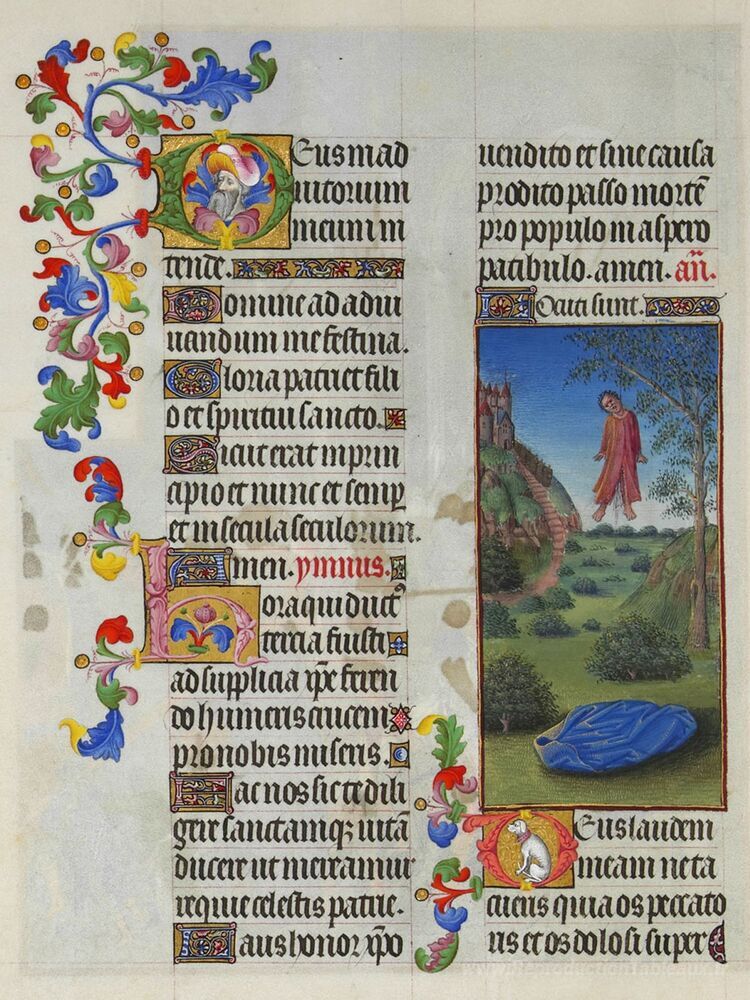 Deus in ad
iutorium
meum in
tende.
Domine ad adiu
uandum me festina.
Gloria patri et fili
o et spiritui sancto.
Sicut erat in prin
cipio et nunc et semp
et in secula seculorum.
Amen. ymnus.
Hora qui duct
tercia fuisti
ad supplicia xpe feren
do humeris crucem
pro nobis miseris.
Fac nos sic te dili
gere sanctamq; uitā
ducere ut mereamur
requie celestis patrie.
Laus honor xpo
uendito et sine causa
prodito passo mortē
pro populo in aspero
patibulo. amen. añ.
Lociti sunt.
Deus laudem
meam ne ta
cueris quia os peccato
ris et os dolosi super